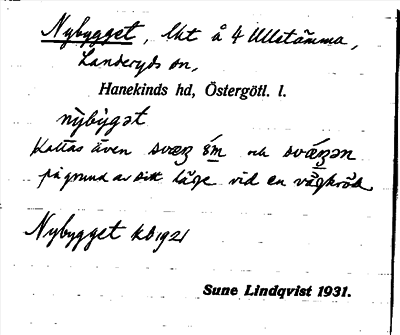 Nybygget, lht å 4 Ullstämma,
Landeryds sn,
Hanekinds hd, Östergötl. l.
nỳbỳgət
Kallas även svæŋ och
på grund av sitt läge vid en vägkrök
Nybygget kb 1921
Sune Lindqvist 1931.